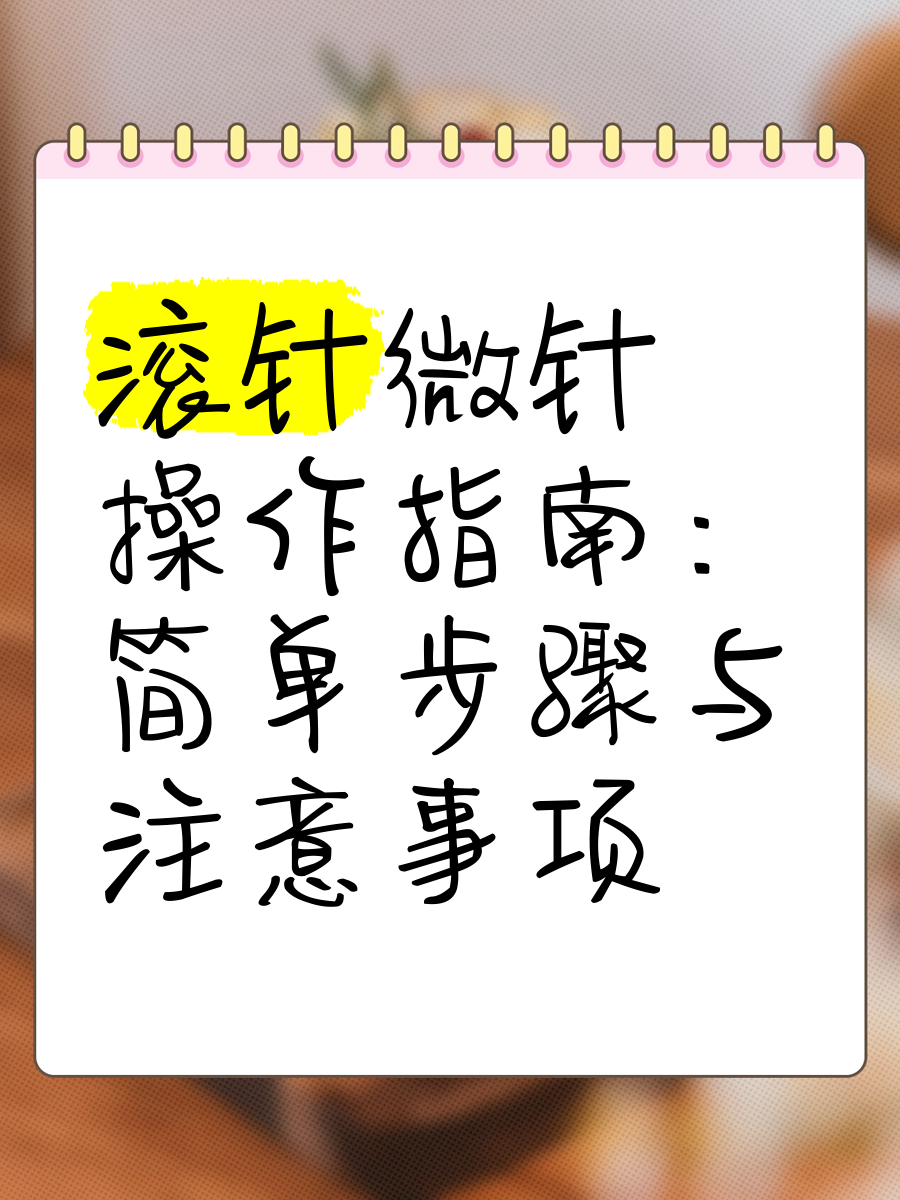 滚针微针
操作指南：
简单步骤与
注意事项